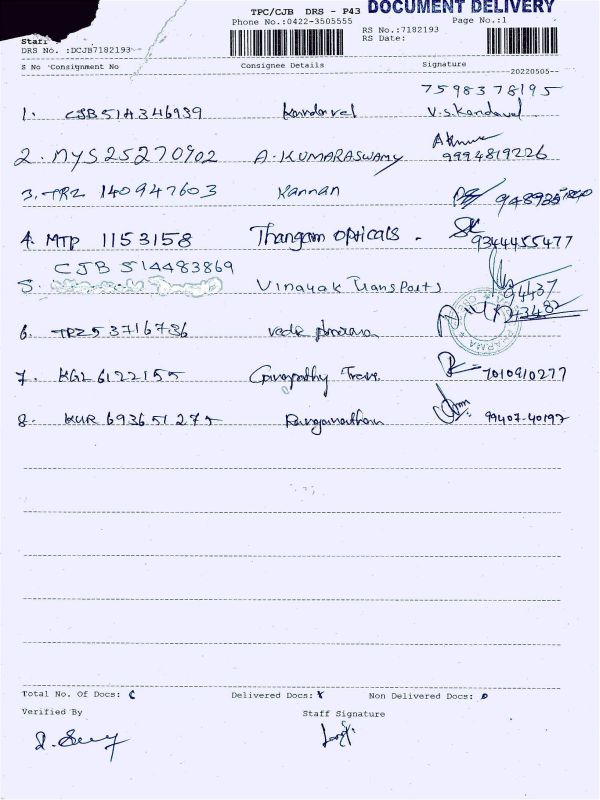 TPC/CJB DRS - P43 DOCUMENT DELIVERY
Phone No.:0422-3505555 Page No.:1
Staff RS No.:7182193
DRS No. :DCJB7182193 RS Date:
S No Consignment No Consignee Details Signature
20220505
7598378195
1. CJB 514346939 Kandavel V.S.Kandavel
2. MYS 25270902 A. KUMARASWAMY 9994819226
3. TRZ 140947603 Kannan
4. MTP 1153158 Thangam opticals. 9344455477
CJB 514483869
5. Vinayak Transports 94437
PHARMA 23482
6. TRZ 53716736
7. KGL 6122155 Ganapathy 7010910277
8. KUR 693651275 Ranganathan 99407-40197
Total No. Of Docs: Delivered Docs: Non Delivered Docs:
Verified By Staff Signature